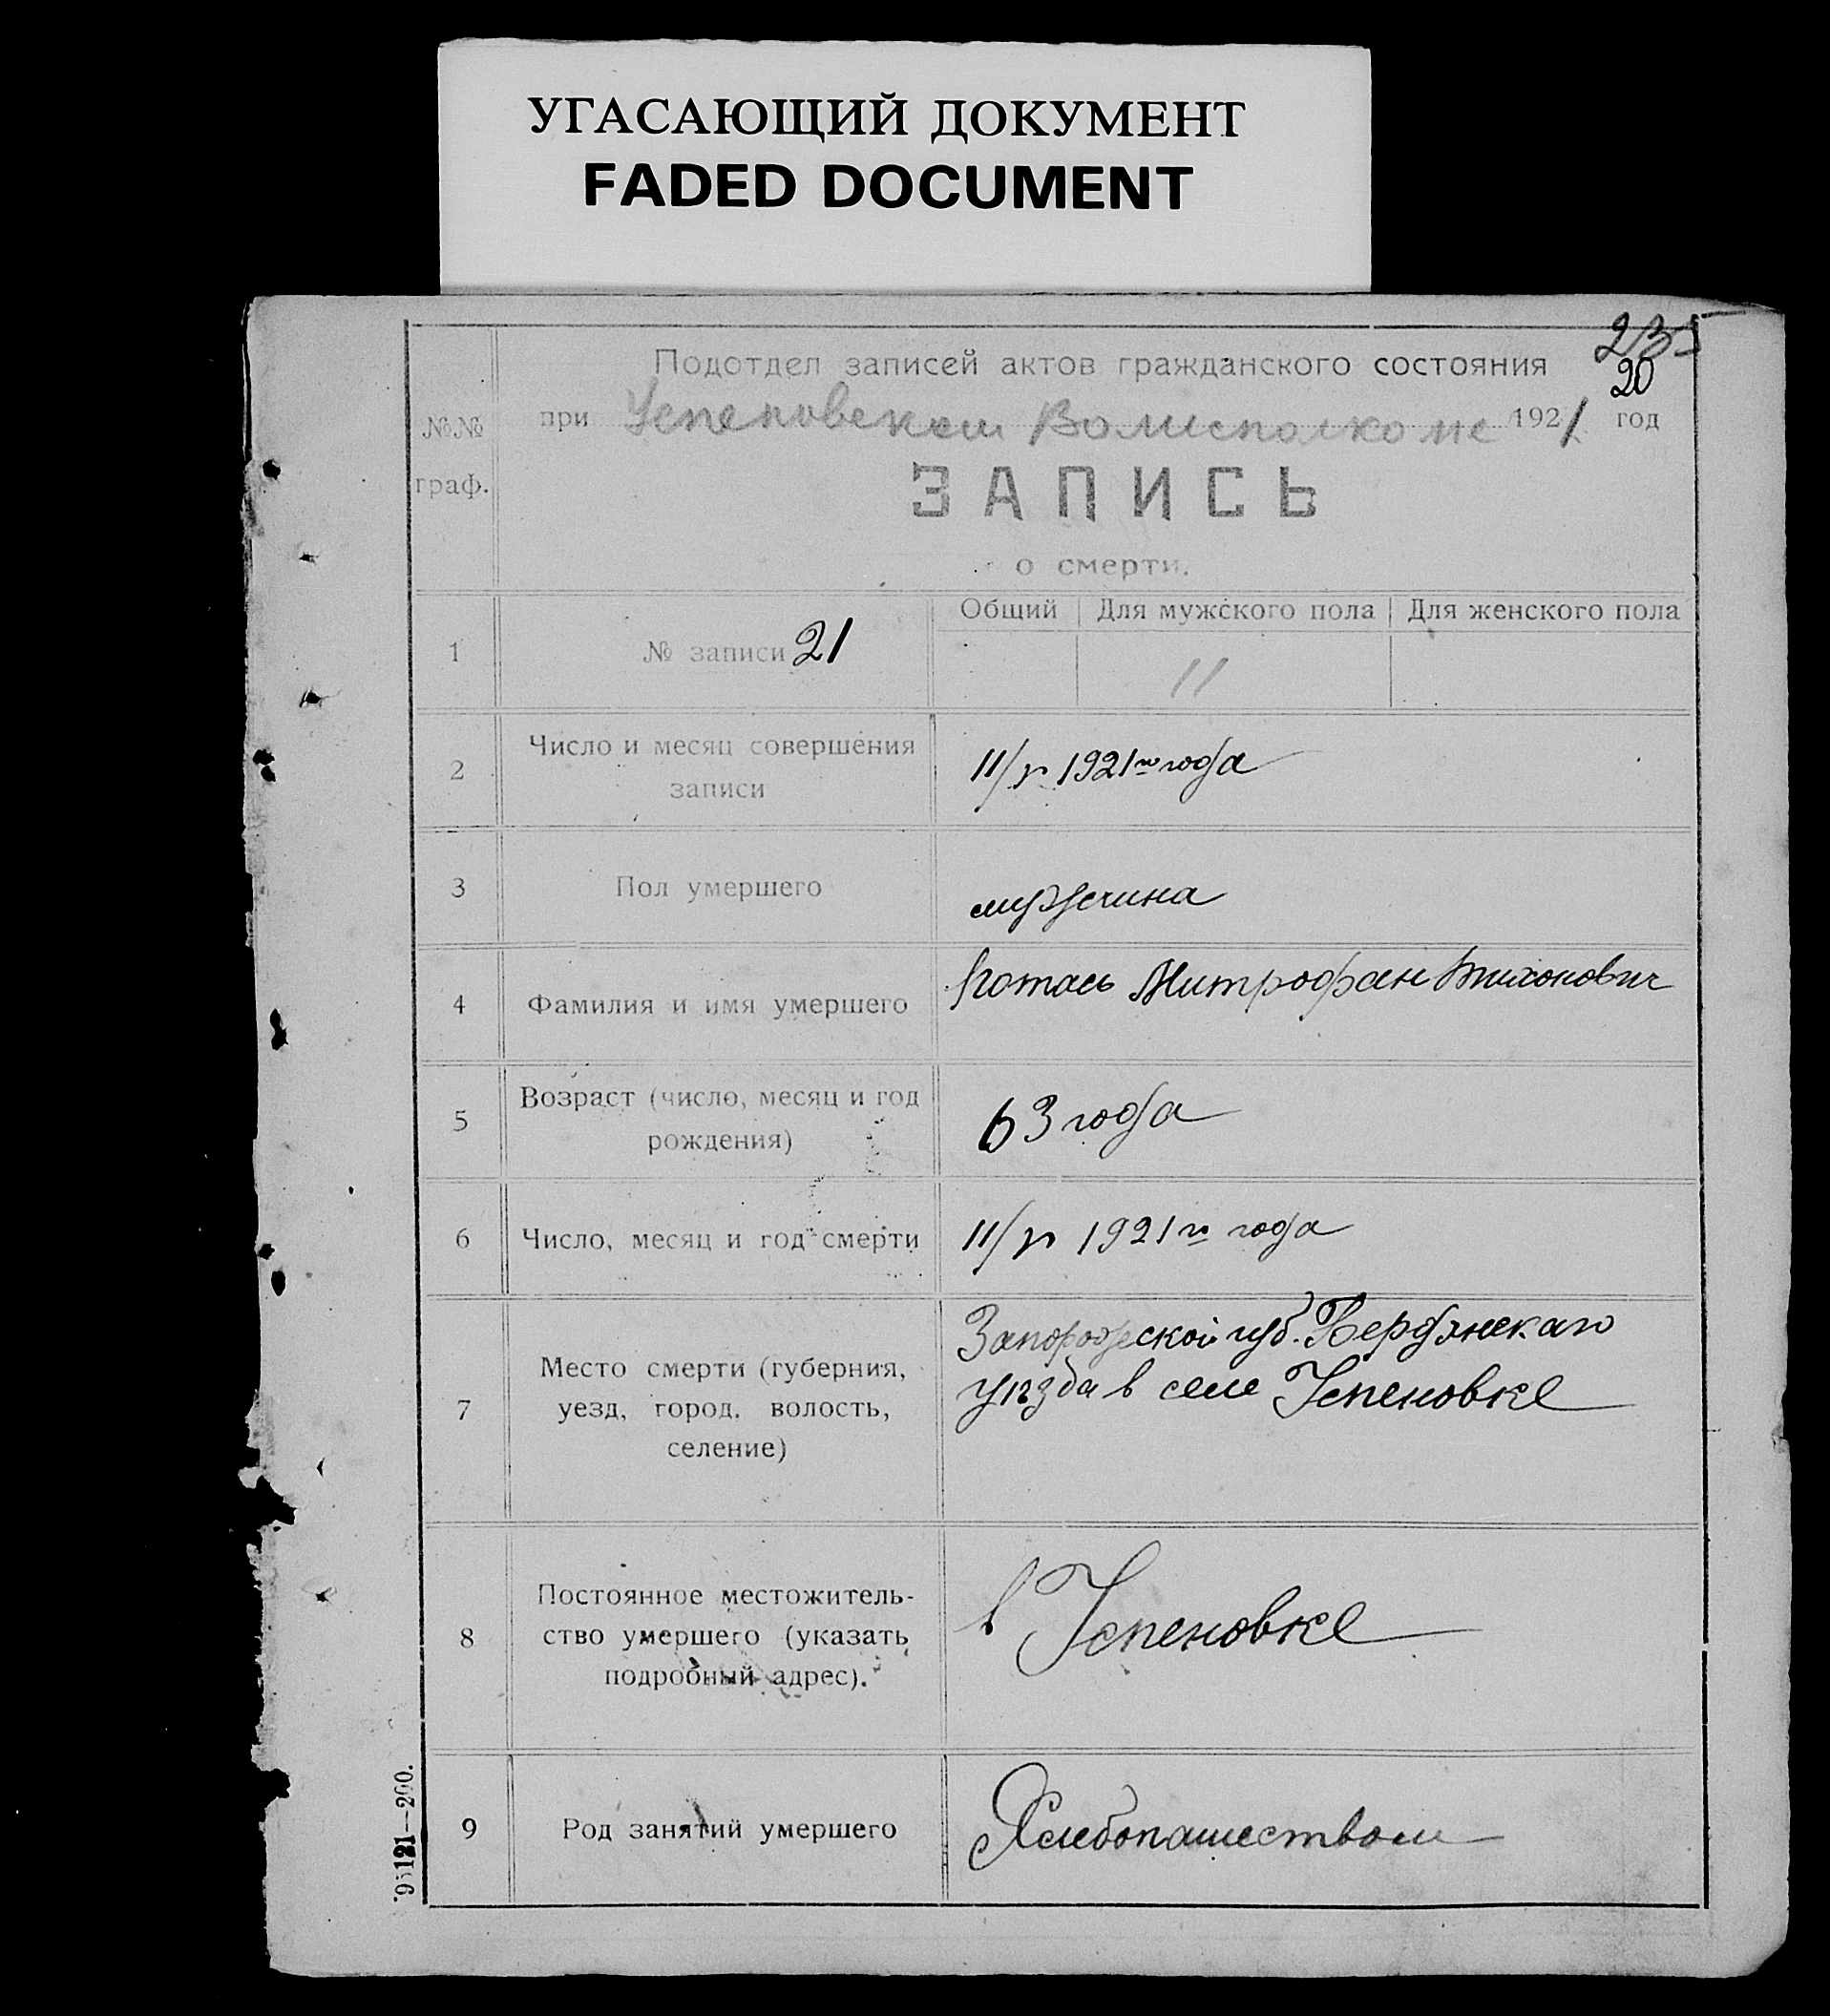 УГАСАЮЩИЙ ДОКУМЕНТ
FADED DOCUMENT
235
20
Подотдел записей актов гражданского состояния
№№
граф.
при Успеновском Волисполкоме 1921 год
ЗАПИСЬ
о смерти.
1
№ записи 21
Общий Для мужского пола Для женского пола
11
2
Число и месяц совершения
записи
11/V 1921го года
3
Пол умершего
мужчина
4
Фамилия и имя умершего
Митрофан Тихонович
5
Возраст (число, месяц и год
рождения)
63 года
6
Число, месяц и год смерти
11/V 1921го года
7
Место смерти (губерния,
уезд, город, волость,
селение)
Запорожской губ. Бердянскаго
уѣзда в селе Успеновке
8
Постоянное местожитель-
ство умершего (указать
подробный адрес).
в Успеновке
9
Род занятий умершего
Хлебопашеством